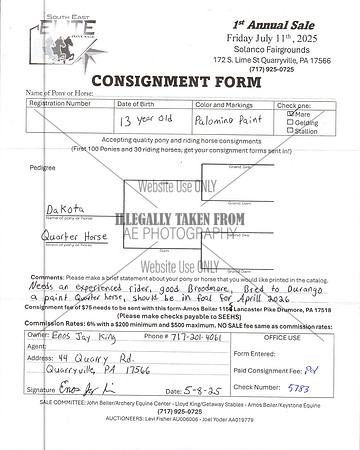 South East
ELITE
PONY SALE
1st Annual Sale
Friday July 11th, 2025
Solanco Fairgrounds
172 S. Lime St Quarryville, PA 17566
(717) 925-0725
CONSIGNMENT FORM
Name of Pony or Horse:
Registration Number
Date of Birth
13 year old
Color and Markings
Palomino Paint
Check one:
Mare
Gelding
Stallion
Accepting quality pony and riding horse consignments
(First 100 Ponies and 30 riding horses; get your consignment forms sent in!)
Pedigree
Grand Sire
Website Use ONLY
Sire
Grand Dam
Dakota
Name of pony or horse
ILLEGALLY TAKEN FROM
AE PHOTOGRAPHY
Quarter Horse
Breed of pony or horse
Grand Sire
Dam
Grand Dam
Website Use ONLY
Comments: Please make a brief statement about your pony or horse that you would like printed in the catalog.
Needs an experienced rider, good Broodmare, Bred to Durango
a paint Quarter horse, should be in foal for Aprill 2026
Consignment fee of $75 needs to be sent with this form-Amos Beiler 1154 Lancaster Pike Drumore, PA 17518
(Please make checks payable to SEEHS)
Commission Rates: 6% with a $200 minimum and $500 maximum. NO SALE fee same as commission rates:
Owner: Enos Jay King Phone # 717-201-4061
Agent:
Address: 44 Quarry Rd.
Quarryville, PA 17566
Signature Date: 5-8-25
OFFICE USE
Form Entered:
Paid Consignment Fee: Pd
Check Number: 5783
SALE COMMITTEE: John Beiler/Archery Equine Center - Lloyd King/Getaway Stables - Amos Beiler/Keystone Equine
(717) 925-0725
AUCTIONEERS: Levi Fisher AU006006 - Joel Yoder AA019779